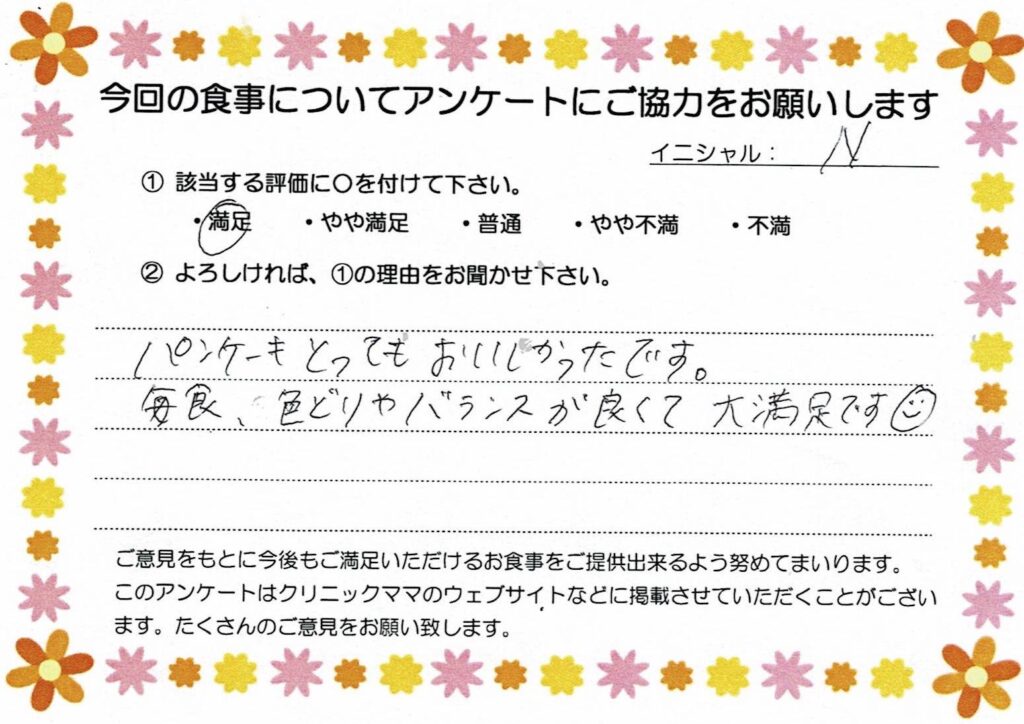 今回の食事についてアンケートにご協力をお願いします
イニシャル： N
① 該当する評価に〇を付けて下さい。
・満足 ・やや満足 ・普通 ・やや不満 ・不満
② よろしければ、①の理由をお聞かせ下さい。
パンケーキとってもおいしかったです。
毎食、色どりやバランスが良くて大満足です
ご意見をもとに今後もご満足いただけるお食事をご提供出来るよう努めてまいります。
このアンケートはクリニックママのウェブサイトなどに掲載させていただくことがござい
ます。たくさんのご意見をお願い致します。